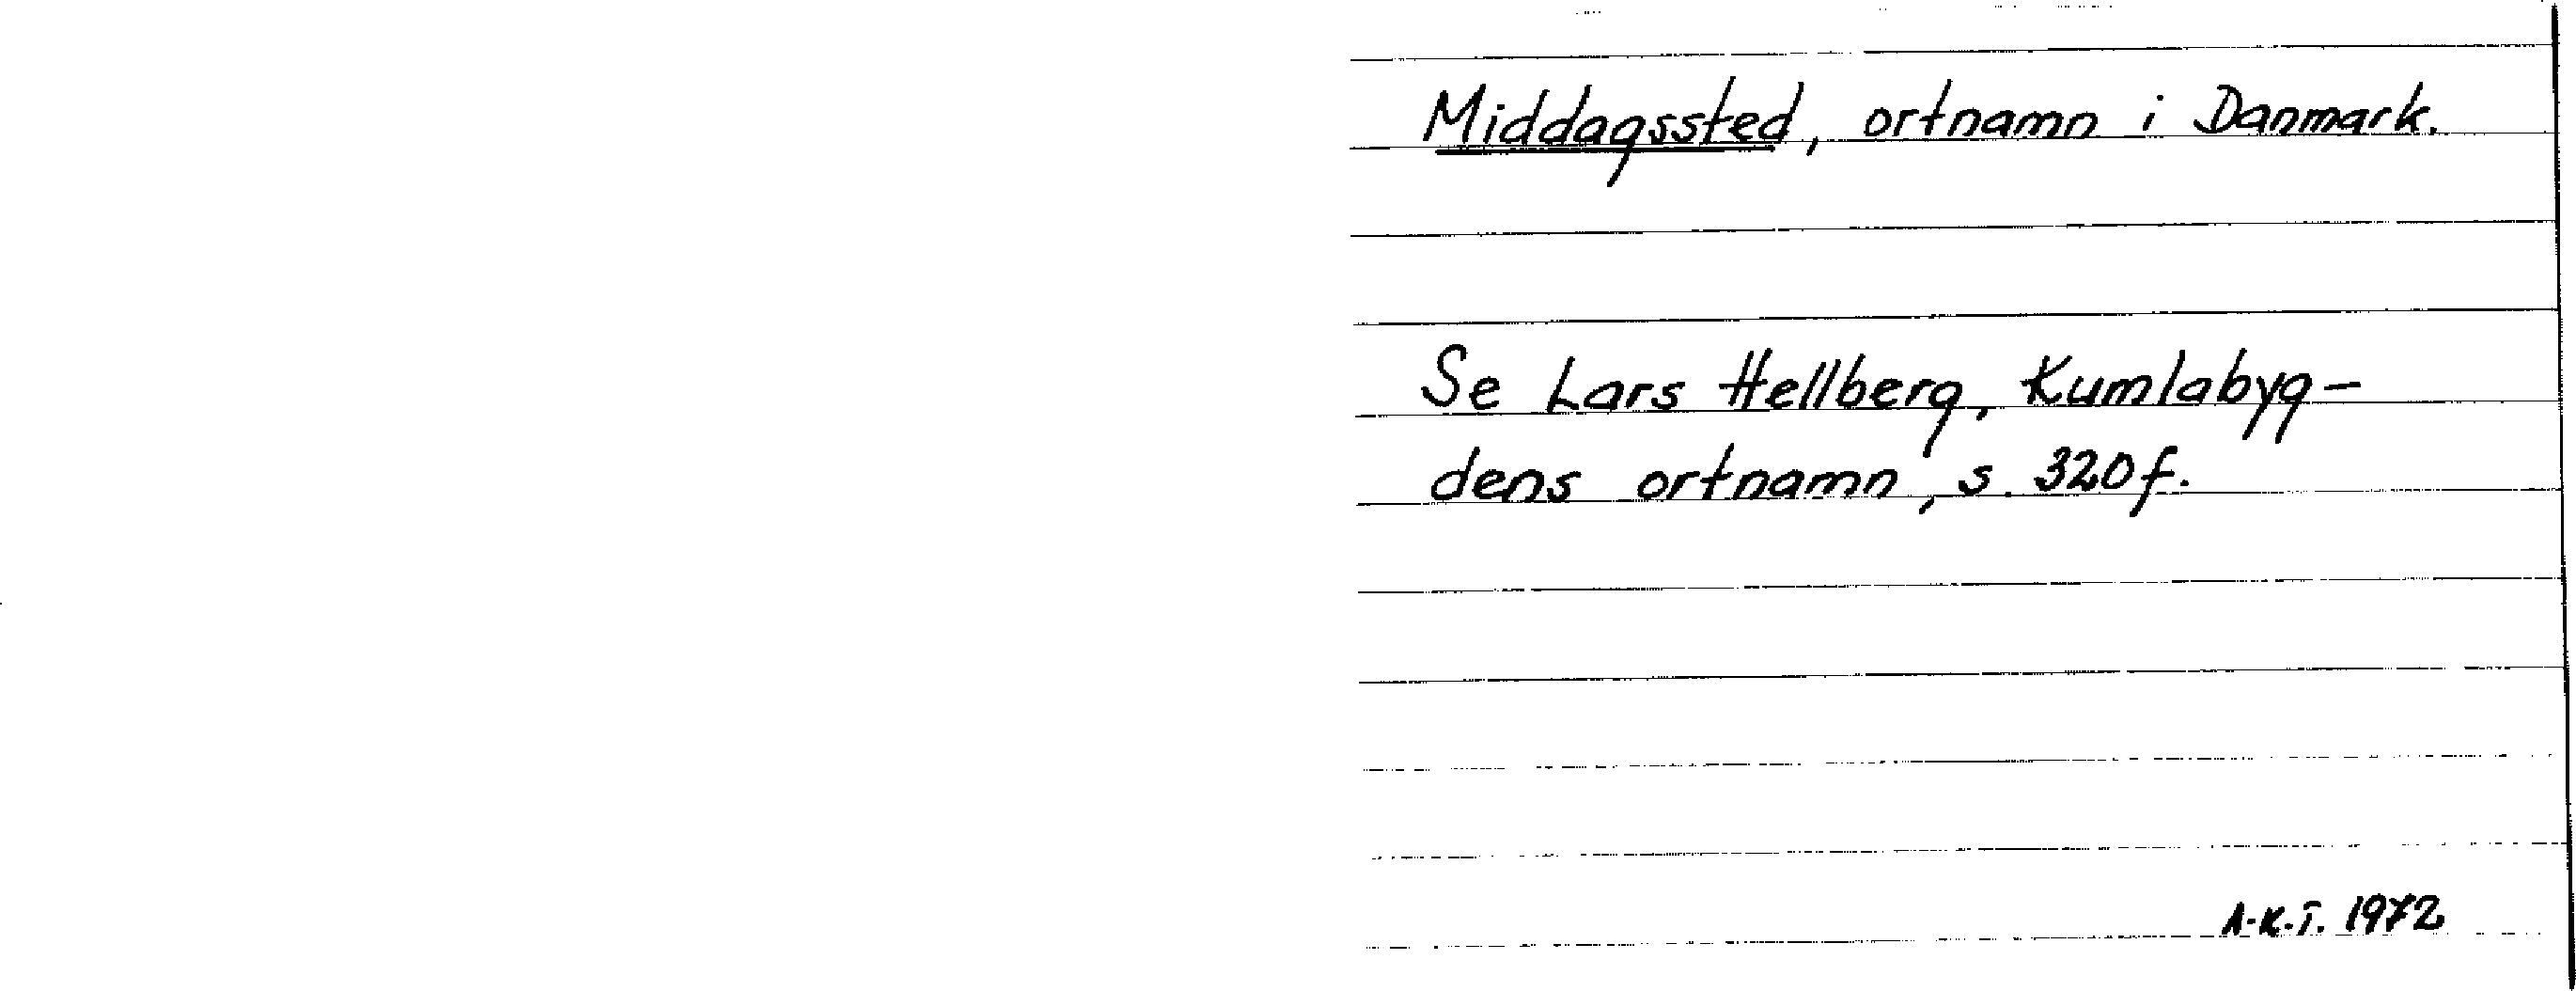 Middagssted, ortnamn i Danmark.
Se Lars Hellberg, Kumlabyg-
dens ortnamn, s. 320f.
A-K.T. 1972